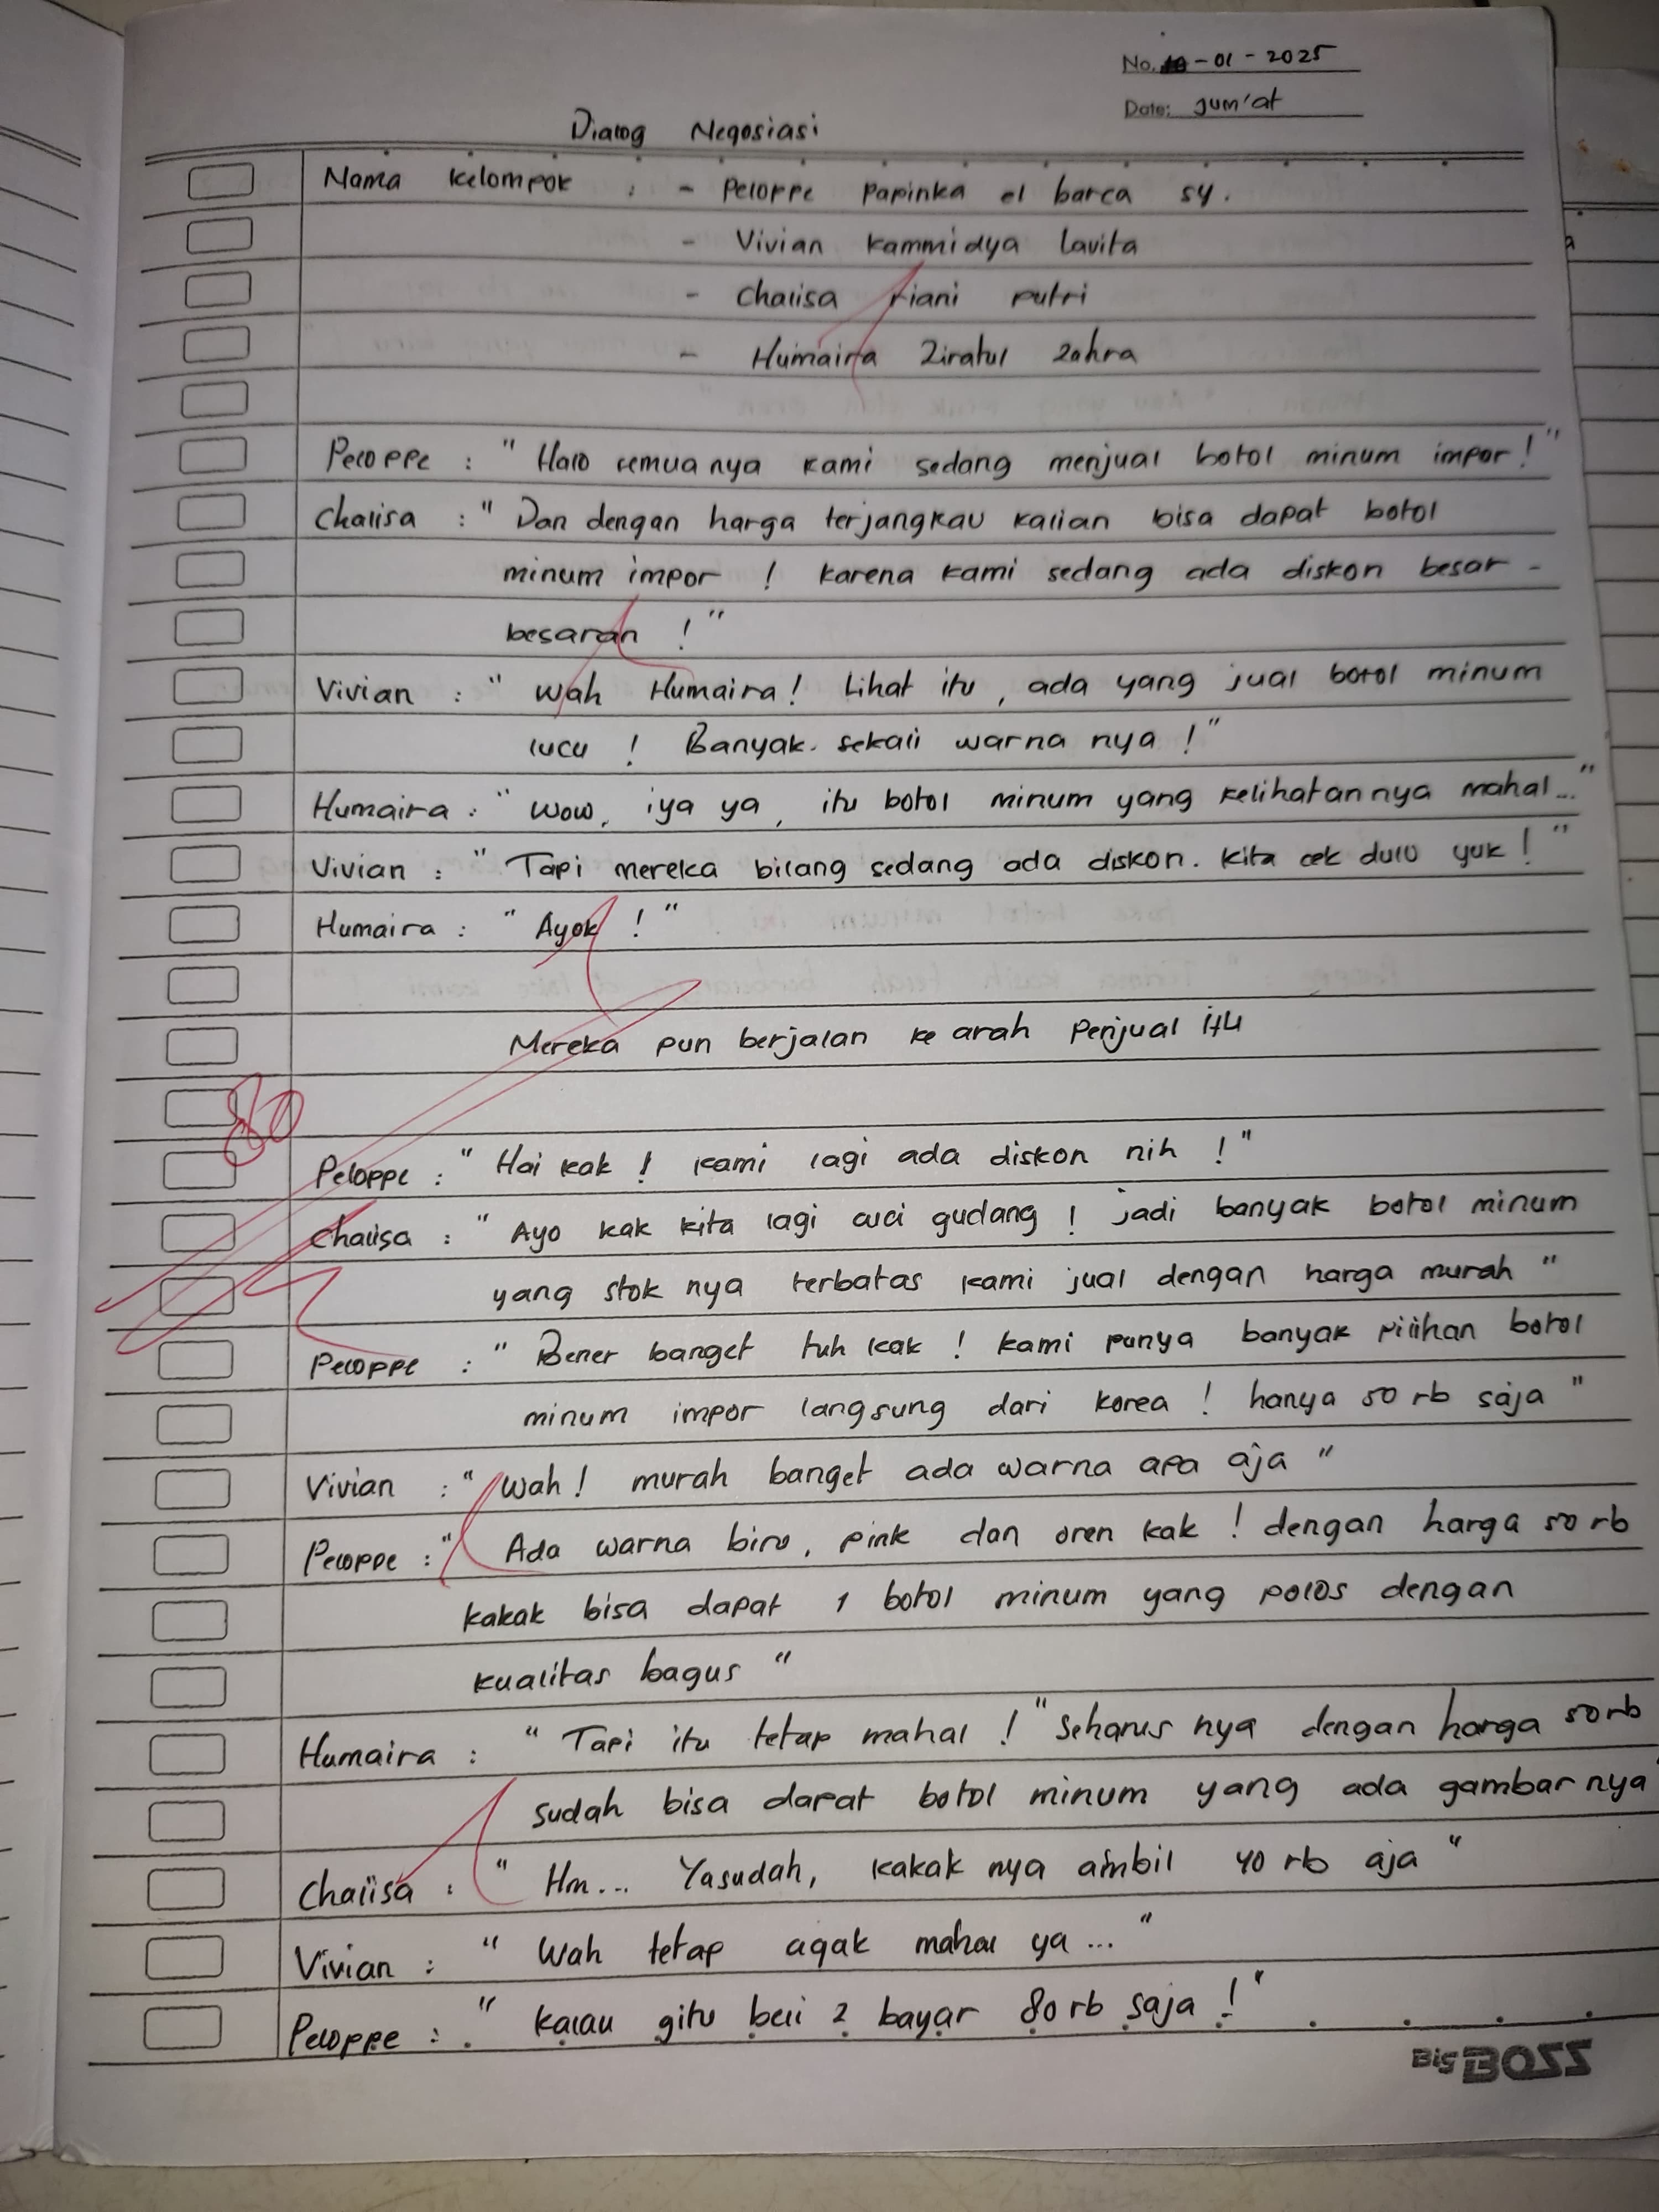 No. -01-2025
Date: Jum'at
Dialog Negosiasi
Nama kelompok : - Peloppe Papinka el barca sy.
- Vivian kammidya Lavita
- Chalisa riani putri
- Humaira Ziratul Zahra
Peloppe : " Halo semua nya kami sedang menjual botol minum impor ! "
Chalisa : " Dan dengan harga terjangkau kalian bisa dapat botol
minum impor ! karena kami sedang ada diskon besar -
besaran ! "
Vivian : " Wah Humaira ! Lihat itu , ada yang jual botol minum
lucu ! Banyak sekali warna nya ! "
Humaira : " Wow, iya ya , itu botol minum yang kelihatannya mahal... "
Vivian : " Tapi mereka bilang sedang ada diskon. Kita cek dulu yuk ! "
Humaira : " Ayok ! "
Mereka pun berjalan ke arah Penjual itu
80
Peloppe : " Hai kak ! kami lagi ada diskon nih ! "
Chalisa : " Ayo kak kita lagi cuci gudang ! jadi banyak botol minum
yang stok nya terbatas kami jual dengan harga murah "
Peloppe : " Bener banget tuh kak ! kami punya banyak pilihan botol
minum impor langsung dari korea ! hanya 50 rb saja "
Vivian : " Wah ! murah banget ada warna apa aja "
Peloppe : " Ada warna biru , pink dan oren kak ! dengan harga 50 rb
kakak bisa dapat 1 botol minum yang polos dengan
kualitas bagus "
Humaira : " Tapi itu tetap mahal ! " Seharus nya dengan harga 50rb
sudah bisa dapat botol minum yang ada gambar nya "
Chalisa : " Hm... Yasudah, kakak nya ambil 40 rb aja "
Vivian : " Wah tetap agak mahal ya ... "
Peloppe : " kalau gitu beli 2 bayar 80 rb saja ! "
Big BOSS